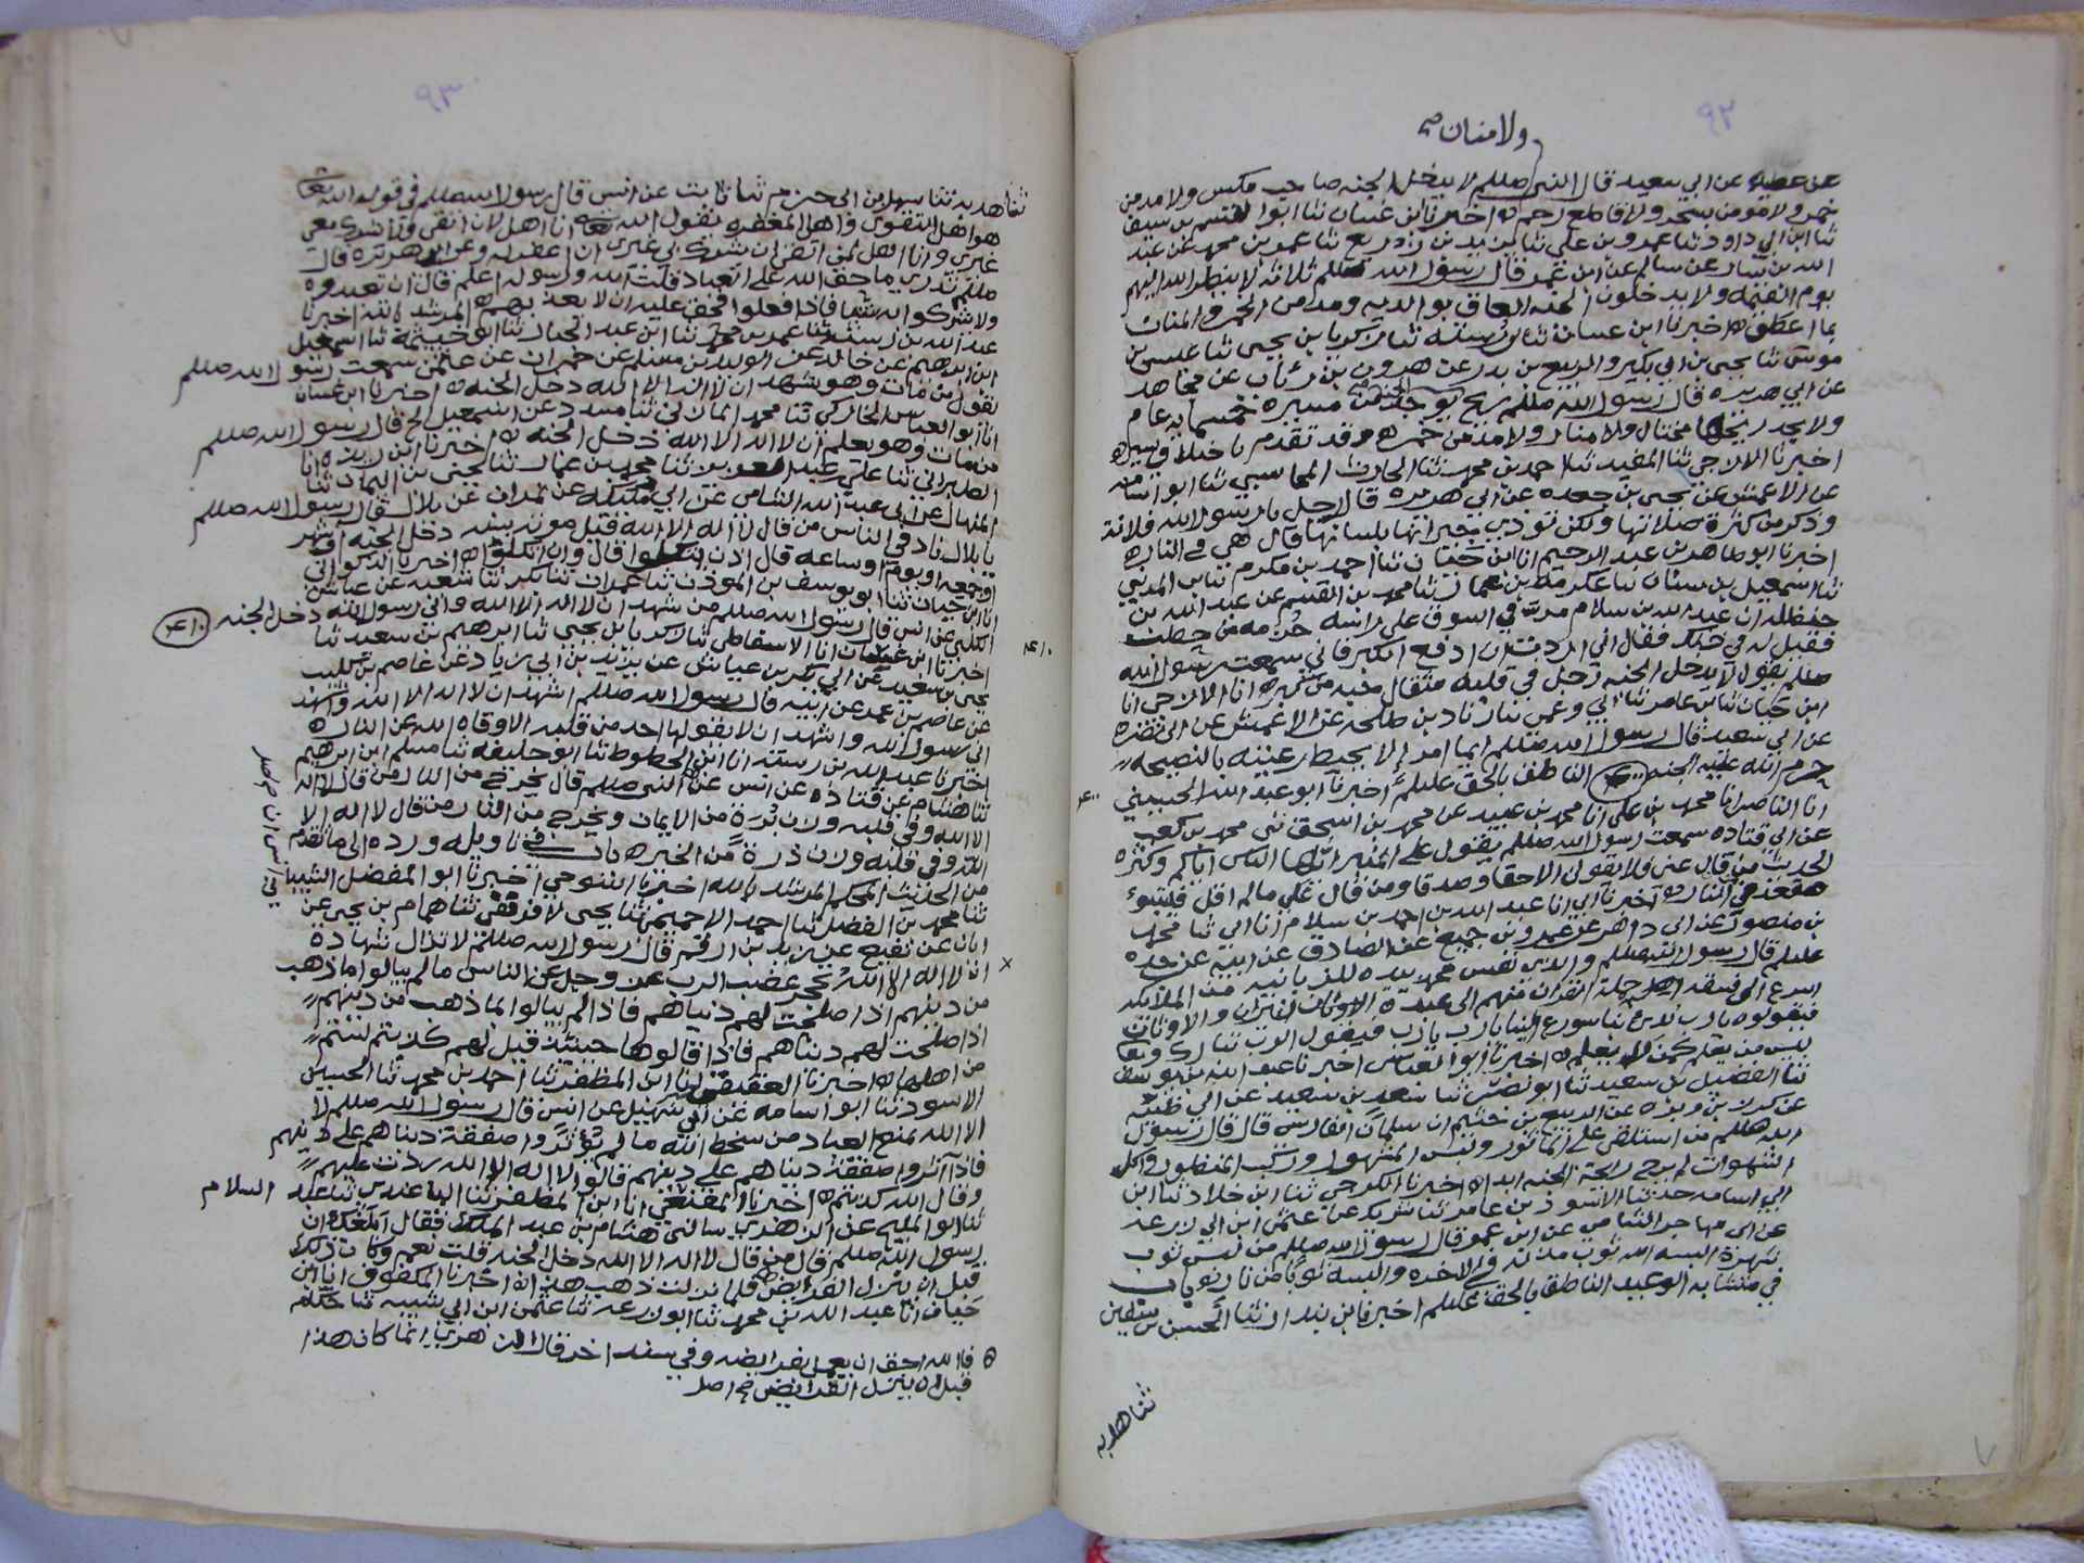 ٩٢
ولا منان صح
عن عطيه عن ابي سعيد قال النبي صللم لا يدخل الجنه صاحب مكس ولا مدمن
خمر ولا مومن بسحر ولا قاطع رحم ه اخبرنا ابن غسان ثنا ابوا لقسم بن سيف
ثنا ابن ابي داود ثنا عمرو بن علي ثنا يزيد بن زريع ثنا عمر بن محمد عن عبد
الله بن يسار عن سالم عن ابن عمر قال رسول الله صللم ثلاثه لا ينظر الله اليهم
يوم القيمه ولا يدخلون الجنه العاق بوالديه ومدمن الخمر والمنان
بما اعطى ه اخبرنا ابن غسان ثنا ابن رسته ثنا زكريا بن يحيى ثنا عيسى بن
موسى ثنا يحيى بن ابي بكير والربيع بن بدر عن هرون بن رئاب عن مجاهد
عن ابي هريره قال رسول الله صللم ريح الجنه يوجد من مسيرة خمسمايه عام
ولا يجد ريحها مختال ولا منان ولا مدمن خمر ه وقد تقدم باختلاف يسير ه
اخبرنا الالاجي ثنا المفيد ثنا احمد بن محمد ثنا الحارث المحاسبي ثنا ابو اسامه
عن الاعمش عن يحيى بن جعده عن ابي هريره قال رجل يا رسول الله فلانة
وذكر من كثرة صلاتها ولكن تؤذي جيرانها بلسانها قال هي في النار ه
اخبرنا ابو طاهر بن عبد الرحيم انا ابن حيان ثنا احمد بن مكرم ثنا بن المديني
ثنا اسمعيل بن سنان ثنا عكرمه بن عمار ثنا محمد بن القسم عن عبد الله بن
حنظله ان عبد الله بن سلام مر في السوق على راسه حزمه من حطب
فقيل له في ذلك فقال اني اردت ان ادفع الكبر فاني سمعت رسول الله
صللم يقول لا يدخل الجنه رجل في قلبه مثقال حبه من كبر ه انا الالاجي انا
ابن حيان ثنا بن عامر ثنا ابي وعمي ثنا زياد بن طلحه عن الاعمش عن ابي نضره
عن ابي سعيد قال رسول الله صللم ايما امر إلا يحيط رعيته بالنصيحه
حرم الله عليه الجنه ٤٠٠ الناطق بالحق عليلم اخبرنا ابو عبد الله الحسيني
٤٠٠
انا الناصر انا محمد بن علي انا محمد بن عبيد عن محمد بن اسحق ثنى محمد بن كعب
عن ابي قتاده سمعت رسول الله صللم يقول على المنبر ايها الناس اياكم وكثره
الحديث من قال عني فلا يقولن الا حقا وصدقا ومن قال علي مالم اقل فليتبوء
مقعده في النار ه اخبرنا ابي انا عبد الله بن احمد بن سلام انا ابي ثنا محمد
بن منصور عن ابي داهر عن عمرو بن جميع عن الصادق عن ابيه عن جده
عليلم قال رسول الله صللم والذي نفس محمد بيده للزبانيه من الملائكه
اسرع الى فسقه حملة القران منهم الى عبدة الاوثان والنيران
فيقولون يا رب بدئ بنا سورع الينا يا رب يا رب فيقول الرب تبارك وتعا
ليس من يعلم كمن لا يعلم ه اخبرنا ابو العباس اخبرنا عبد الله بن يوسف
ثنا الفضيل بن سعيد ثنا ابو نضر ثنا سعد بن سعيد عن ابي ظبيه
عن كرز بن وبره عن الربيع بن خثيم ان سلمان الفارسي قال قال رسول
الله صللم من استلقى على الماثور ولبس المشهور وركب المنظور واكل
الشهوات لم يرح رائحة الجنه ابدا ه اخبرنا الكوجي ثنا ابن خلاد ثنا ابن
ابي اسامه حدثنا الاسود بن عامر ثنا شريك عن عثمن ابن ابي زرعه
عن ابي مهاجر الشامي عن ابن عمر قال رسول الله صللم من لبس ثوب
شهرة البسه الله ثوب مذلة في الاخره والبسه ثوبا من نار ه باب
في متشابه الوعيد الناطق بالحق عليلم اخبرنا بن بندار ثنا الحسين بن سفين
ثنا هدبه
٩٣
ثنا هدبه ثنا سهل بن ابي حزم ثنا ثابت عن انس قال رسول الله صللم في قوله تعا
هو اهل التقوى واهل المغفره يقول الله تعا انا اهل لان اتقى ولا يشرك معي
غيري وانا اهل لمن اتقى ان يشرك بي غيري ان اغفر له وعن ابي هريره قال
صللم تدري ما حق الله على العباد قلت الله ورسوله اعلم قال ان تعبدوه
ولا تشركوا به شيئا فاذا فعلوا فحق عليه ان لا يعذبهم ه المرشد بالله اخبرنا
عبد الله بن رسته ثنا عمر بن محمد ثنا ابن عبد الجبار ثنا ابو خيثمة ثنا اسمعيل
ابن ابرهيم عن خالد عن الوليد بن مسلم عن حمران عن عثمن سمعت رسول الله صللم
يقول من مات وهو يشهد ان لا اله الا الله دخل الجنه ه اخبرنا ابن غسان
انا ابو العباس الخاركي ثنا محمد المازني ثنا مسدد عن اسمعيل الخ قال رسول الله صللم
من مات وهو يعلم ان لا اله الا الله دخل الجنه ه اخبرنا ابن ريذه انا
الطبراني ثنا علي بن عبد العزيز ثنا محمد بن عمار ثنا يحيى بن اليمان ثنا
المنهال عن ابي عبد الله الشامي عن ابي مليكه عن بلال قال رسول الله صللم
يا بلال ناد في الناس من قال لا اله الا الله قبل موته بسنه دخل الجنه او شهر
او جمعه او يوم او ساعه قال اذن يتكلوا قال وان اتكلوا ه اخبرنا الذكواني
انا ابن حيان ثنا ابو يوسف بن المؤذن ثنا عمران ثنا بكر ثنا شعبه عن عياش
الكلبي عن انس قال رسول الله صللم من شهد ان لا اله الا الله واني رسول الله دخل الجنه ٤١٠
٤١٠
اخبرنا ابن غسان انا الاسفاطي ثنا زكريا بن يحيى ثنا ابرهيم بن سعيد ثنا
يحيى بن سعيد عن ابي بكر بن عياش عن يزيد بن ابي زياد عن عاصم بن كليب
عن عاصم بن عمر عن ابيه قال رسول الله صللم اشهد ان لا اله الا الله واشهد
اني رسول الله واشهد ان لا يقولها احد من قلبه الا وقاه الله من النار ه
اخبرنا عبد الله بن رسته انا ابن المخطوط ثنا ابو خليفه ثنا مسلم ابن ابرهيم
ثنا هشام عن قتاده عن انس عن النبي صللم قال يخرج من النار من قال لا اله
الا الله وفي قلبه وزن برة من الايمان ويخرج من النار من قال لا اله الا
الله وفي قلبه وزن ذرة من الخير ه باب في تاويله ورده الى ما تقدم
من الحديث المحكم المرشد بالله اخبرنا التنوخي اخبرنا ابو المفضل الشيباني
ثنا محمد بن الفضل ثنا احمد الاحيمر ثنا يحيى الافرقي ثنا همام بن يحيى عن
ابان عن نفيع عن زيد بن ارقم قال رسول الله صللم لا تزال شهادة
× ان لا اله الا الله تحجز غضب الرب عز وجل عن الناس مالم يبالوا ما ذهب
من دينهم اذا صلحت لهم دنياهم فاذا لم يبالوا لما ذهب من دينهم
اذا صلحت لهم دنياهم فاذا قالوها حينئذ قيل لهم كذبتم لستم
من اهلها ه اخبرنا العقيقي انا ابن المظفر ثنا احمد بن محمد ثنا الحسين
الاسود ثنا ابو اسامه عن ابي سهيل عن انس قال رسول الله صللم لا
الا الله يمنع العباد من سخط الله ما لم يؤثروا صفقة دنياهم على دينهم
فاذا آثروا صفقة دنياهم على دينهم قالوا لا اله الا الله ردت عليهم
وقال الله كذبتم ه اخبرنا المقنعي انا ابن المظفر ثنا الباغندي ثنا عبد السلام
ثنا ابو المليح عن الزهري سالني هشام بن عبد الملك فقال ابلغك ان
رسول الله صللم قال من قال لا اله الا الله دخل الجنه قلت نعم وكان ذلك
قبل ان ينزل الفرائض فلما نزلت ذهب هذا ه اخبرنا المكفوف انا ابن
حيان انا عبد الله بن محمد ثنا ابو زرعه ثنا عثمن ابن ابي شيبه ثنا حكام
ه قال الله احق ان يعمل بفرايضه وفي سند اخر قال الزهري انما كان هذا
قبل ان ينزل الفرايض ه اصل